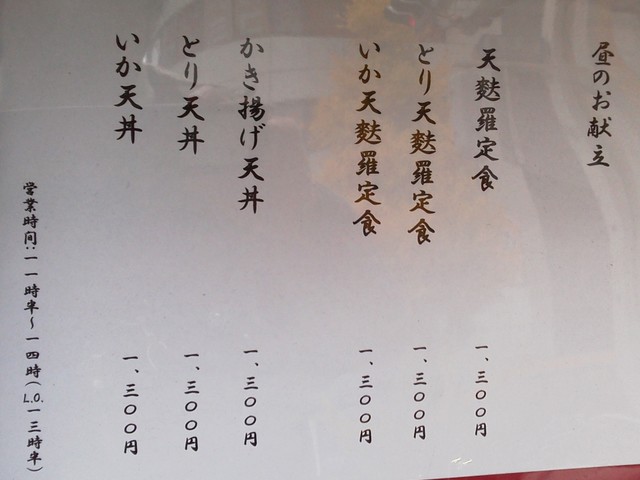 昼のお献立
天麩羅定食 一、三〇〇円
とり天麩羅定食 一、三〇〇円
いか天麩羅定食 一、三〇〇円
かき揚げ天丼 一、三〇〇円
とり天丼 一、三〇〇円
いか天丼 一、三〇〇円
営業時间:一一時半〜一四時(L.O.一三時半)